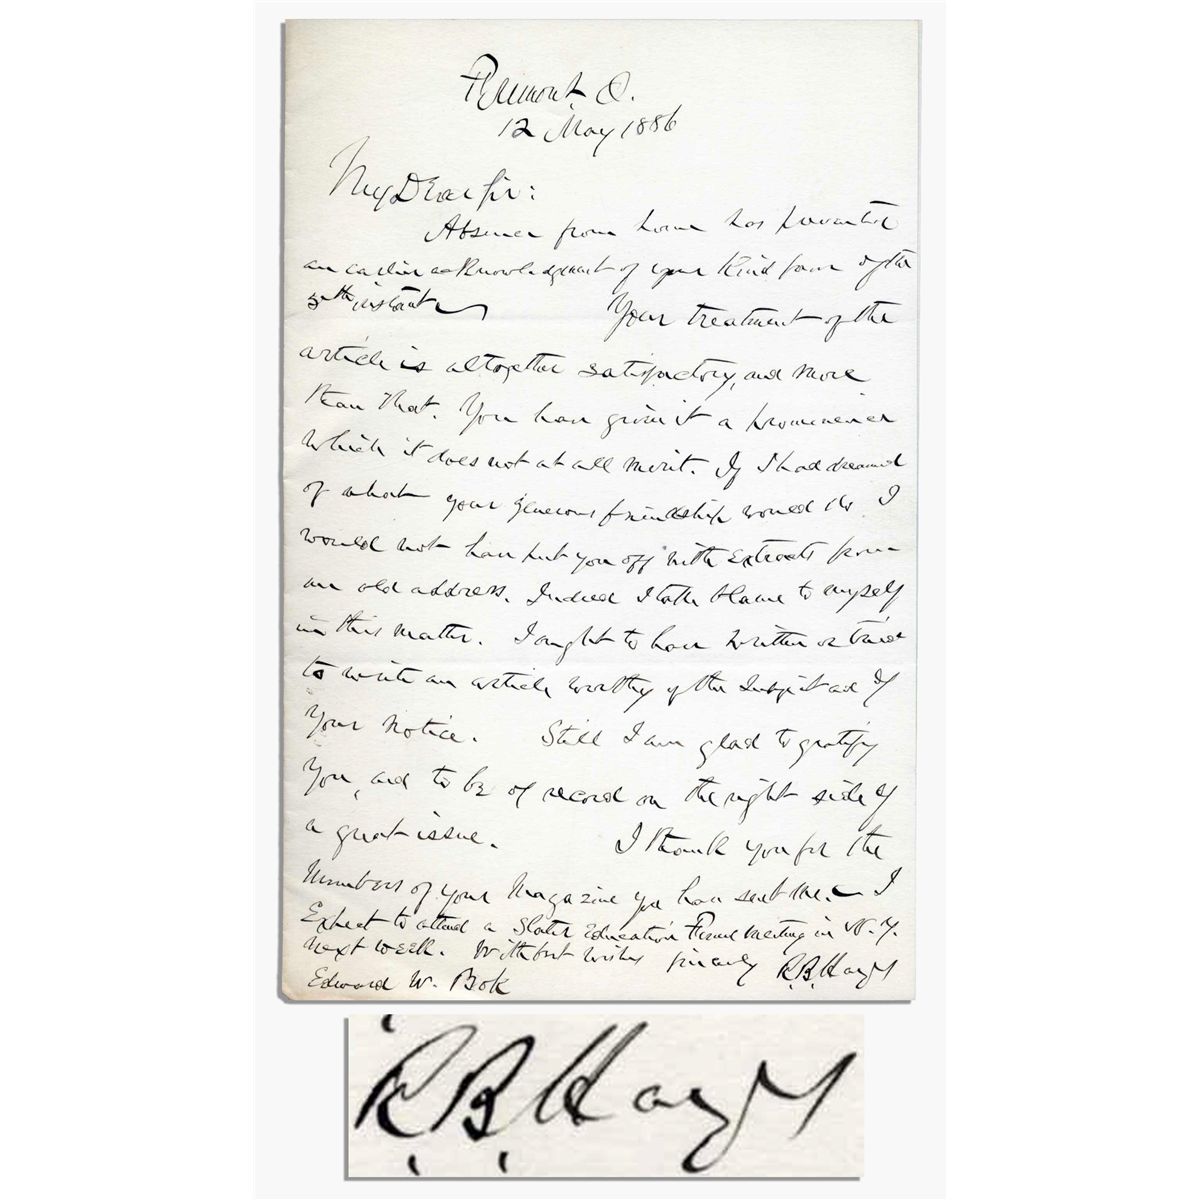 Fremont, O.
12 May 1886
My Dear Sir:
Absence from home has prevented
an earlier acknowledgment of your kind favor of the
5th instant
Your treatment of the
article is altogether satisfactory, and more
than that. You have given it a prominence
which it does not at all merit. If I had dreamed
of what your generous friendship would do I
would not have put you off with extracts from
an old address. Indeed I take blame to myself
in this matter. I ought to have written or tried
to write an article worthy of the subject and of
your notice. Still I am glad to gratify
you, and to be of record on the right side of
a great issue. I thank you for the
numbers of your Magazine you have sent me. — I
expect to attend a Slater Education Fund meeting in N. Y.
next week. With best wishes sincerely R. B. Hayes
Edward W. Bok
R. B. Hayes